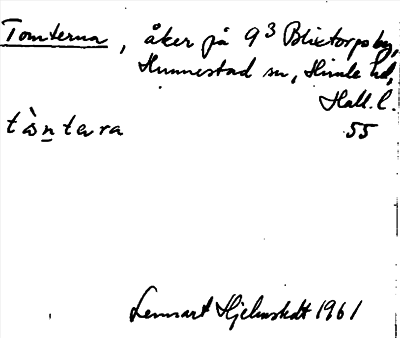 Tomterna, åker på 9³ Blixtorps by,
Hunnestad sn, Himle hd,
Hall. l.
tå̀n̲tara 55
Lennart Hjelmstedt 1961